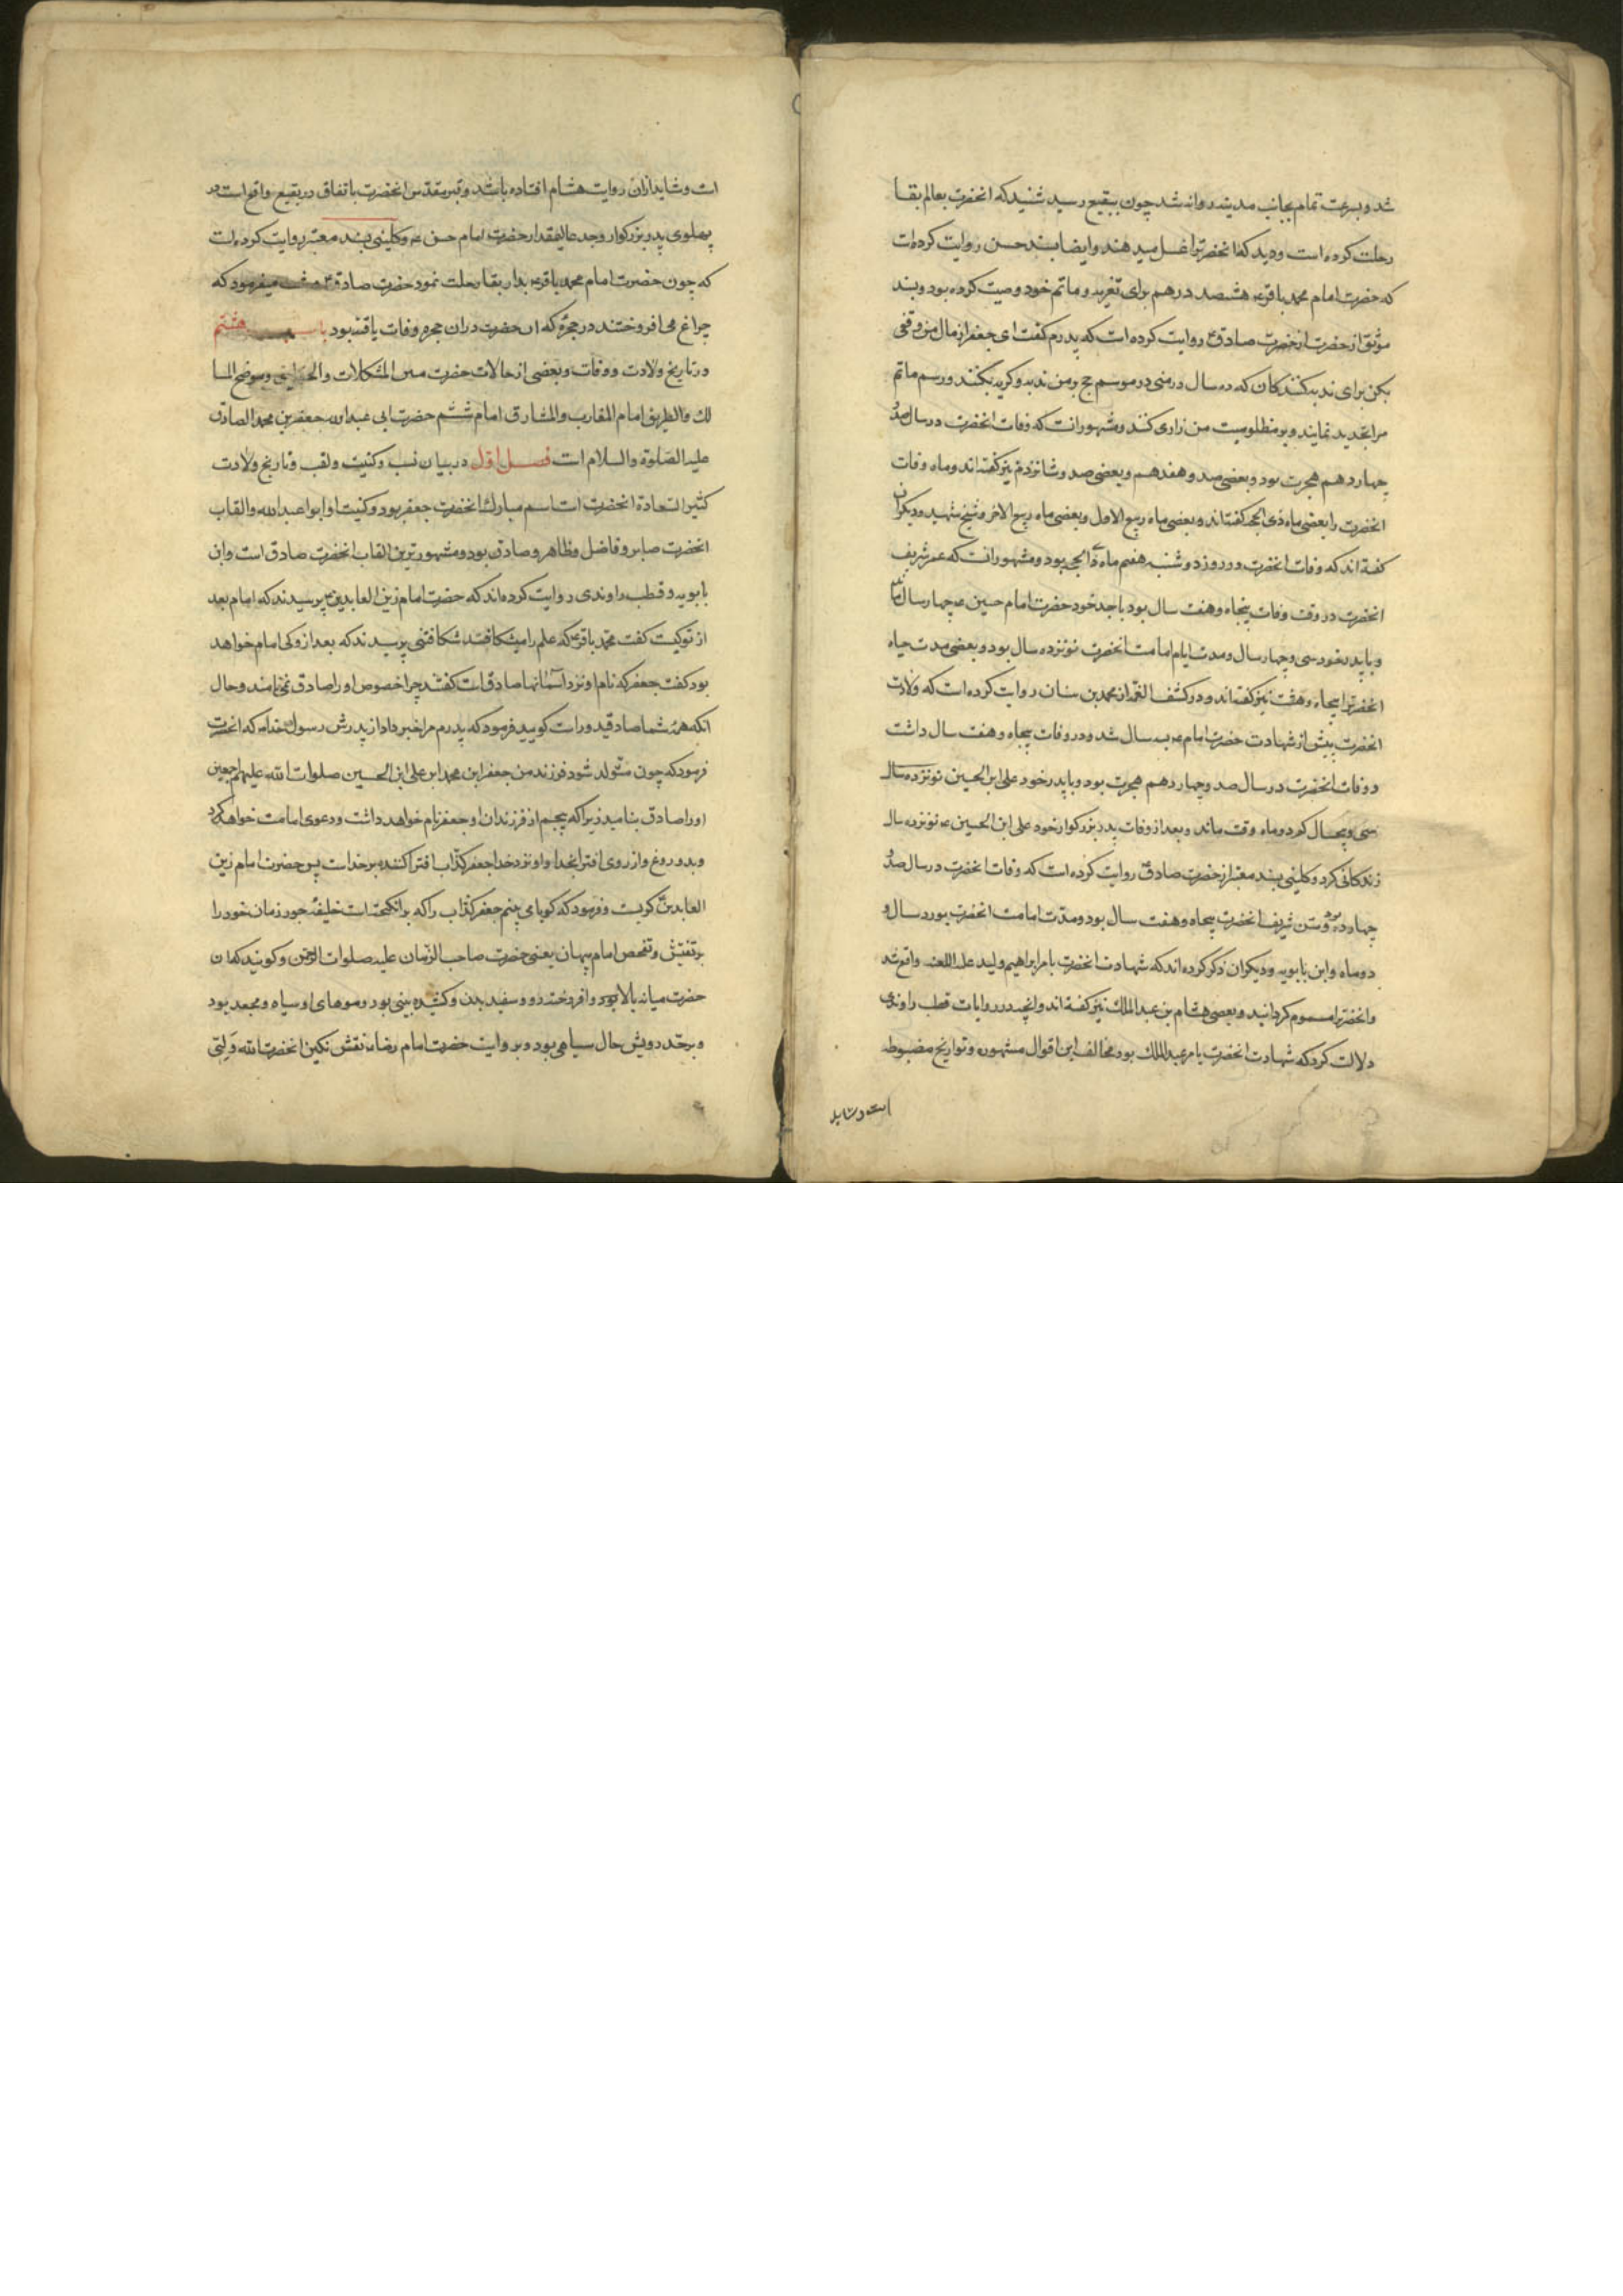 شد و بسرعت تمام بجانب مدینه روانه شد چون ببقیع رسید شنید که انحضرت بعالم بقا
رحلت کرده است ودید که انحضرترا غسل میدهند وایضا بسند حسن روایت کرده است
که حضرت امام محمد باقرء هشصد درهم برای تعزیه و ماتم خود وصیت کرده بود و بسند
موثق از حضرت صادقء روایت کرده است که پدرم کفت ای جعفر از مال من وقفی
بکن برای ندبه کنندکان که ده سال در منی در موسم حج بر من ندبه و کریه بکنند و رسم ماتم
مرا تجدید نمایند و بر مظلومیت من زاری کنند و مشهور انست که وفات انحضرت در سال صد و
چهاردهم هجرت بود و بعضی صد و هفدهم و بعضی صد و شانزدهم نیز کفته اند و ماه وفات
انحضرت را بعضی ماه ذی الحجه کفته اند و بعضی ماه ربیع الاول و بعضی ماه ربیع الاخر و شیخ شهید و دیکران
کفته اند که وفات انحضرت در روز دوشنبه هفتم ماه ذی الحجه بود و مشهور انست که عمر شریف
انحضرت در وقت وفات پنجاه وهفت سال بود با جد خود حضرت امام حسین ء چهار سال
و با پدر خود سی و چهار سال و مدت ایام امامت انحضرت نوزده سال بود و بعضی مدت حیاه
انحضرترا پنجاه و هشت نیز کفته اند و در کشف الغمه از محمد بن سنان روایت کرده است که ولادت
انحضرت پیش از شهادت حضرت امام ء سه سال شد و در وفات پنجاه و هفت سال داشت
و وفات انحضرت در سال صد و چهاردهم هجرت بود و با پدر خود علی ابن الحسین نوزده سال
سی و پنجسال کم دو ماه وقت ماند و بعد از وفات پدر بزرکوار خود علی ابن الحسین ء نوزده سال
زندکانی کرد و کلینی بسند معتبر از حضرت صادقء روایت کرده است که وفات انحضرت در سال صد و
چهارده بود و سن شریف انحضرت پنجاه وهفت سال بود و مدت امامت انحضرت نوزده سال و
دو ماه و ابن بابویه و دیکران ذکر کرده اند که شهادت انحضرت بامر ابراهیم ولید علیه اللعنه واقع شد
وانحضرترا مسموم کردانید و بعضی هشام بن عبد الملک نیز کفته اند و انچه در روایات قطب راوندی
دلالت کرد که شهادت انحضرت بامر عبد الملک بود مخالف این اقوال مشهوره و تواریخ مضبوطه
است و شاید
است و شاید ازان روایت هشام افتاده باشد و قبر مقدس انحضرت باتفاق در بقیع واقع است در
پهلوی پدر بزرکوار وجد عالیمقدار حضرت امام حسن ء و کلینی بسند معتبر روایت کرده است
که چون حضرت امام محمد باقرء بدار بقا رحلت نمود حضرت صادقء میفرمود که
چراغ می افروختند در حجره که ان حضرت دران حجره وفات یافته بود باب هشتم
در تاریخ ولادت و وفات و بعضی از حالات حضرت مبین المشکلات والحقایق و موضح المسا
لک والطریق امام المغارب والمشارق امام ششم حضرت ابی عبد الله جعفر بن محمد الصادق
علیه الصلوة والسلام است فصل اول در بیان نسب وکنیت ولقب وتاریخ ولادت
کثیر السعادة انحضرت است اسم مبارک انحضرت جعفر بود و کنیت او ابو اعبد الله والقاب
انحضرت صابر و فاضل و طاهر و صادق بود و مشهورترین القاب انحضرت صادق است وابن
بابویه و قطب راوندی روایت کرده اند که حضرت امام زین العابدینء پرسیدند که امام بعد
از تو کیست کفت محمد باقرء که علم را میشکافد شکافتنی پرسیدند که بعد از او کی امام خواهد
بود کفت جعفر که نام او نزد اسمانها صادق است کفتند چرا خصوص او را صادق می نامند و حال
انکه همه شما صادقید و راست کویید فرمود که پدرم مرا خبر داد از پدرش رسول خدا که انحضرت
فرمود که چون متولد شود فرزند من جعفر ابن محمد ابن علی ابن الحسین صلوات الله علیهم اجمعین
او را صادق بنامید زیرا که پنجم از فرزندان او جعفر نام خواهد داشت و دعوی امامت خواهد کرد
و بدروغ و از روی افترا بخدا و او نزد خدا جعفر کذاب افترا کننده بر خداست پس حضرت امام زین
العابدین کریست و فرمود که کویا می بینم جعفر کذاب را که بر انکیخته است خلیفه جور زمان خود را
بر تفتیش و تفحص امام پنهان یعنی حضرت صاحب الزمان علیه صلوات الرحمن و کویند که ان
حضرت میانه بالا بود و افروخته رو و سفید بدن و کشیده بینی بود و موهای او سیاه و مجعد بود
و بر خد رویش خال سیاهی بود و بروایت حضرت امام رضا نقش نکین انحضرت الله ولیی